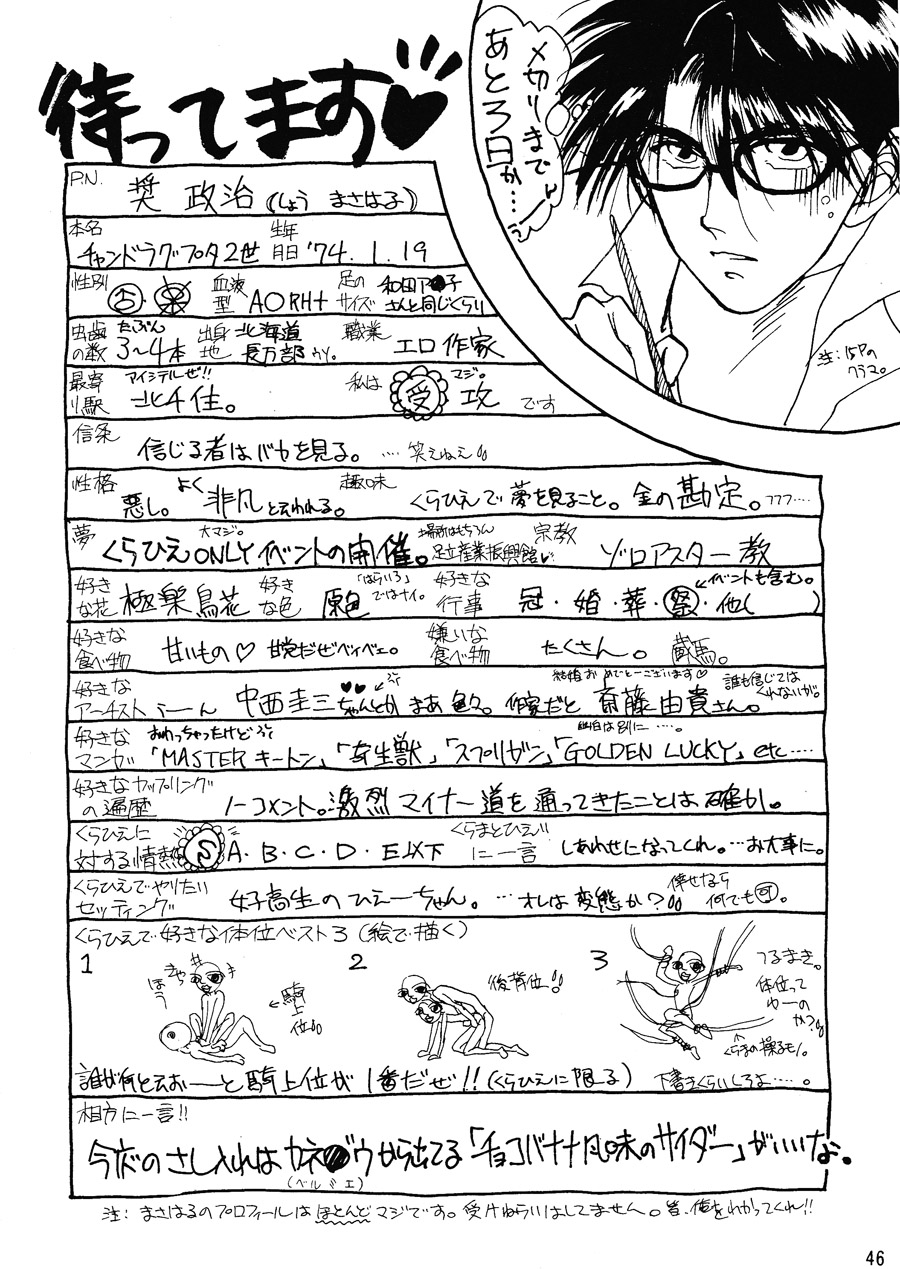 待ってます♡
〆切りまで
あと3日か…。
注：15Pの
クラマ。
P.N. 奨 政治 (しょう まさはる)
本名 チャンドラグプタ2世 生年月日 '74.1.19
性別 血液型 AO RH+ 足のサイズ 和田ア●子さんと同じくらい
虫歯の数 たぶん 3〜4本 出身地 北海道 長万部 職業 エロ作家
最寄り駅 アイシテルぜ!! 北千住。 私は 受 攻 マジ。 です
信条 信じる者はバカを見る。….笑えねえ
性格 悪し。よく非凡と云われる。 趣味 くらひえで夢を見ること。金の勘定。フフフ……
夢 大マジ。 くらひえONLYイベントの開催。場所はもちろん足立産業振興館 宗教 ゾロアスター教
好きな花 極楽鳥花 好きな色 原色 「はらいろ」ではナイ。 好きな行事 冠・婚・葬・祭・他( ) ←イベントも含む。
好きな食べ物 甘いもの♡ 甘党だぜベイベェ。 嫌いな食べ物 たくさん。 蔵馬。
好きなアーチスト うーん 中西圭三ちゃんとか まあ色々。作家だと 斎藤由貴さん。 結婚おめでとーございます♡ 誰も信じてはくれないが。
好きなマンガ おわっちゃったけどぶて 「MASTERキートン」「寄生獣」「スプリガン」「GOLDEN LUCKY」etc…… 幽白は別に….。
好きなカップリングの遍歴 ノーコメント。激烈マイナー道を通ってきたことは確か。
くらひえに対する情熱 S・A・B・C・D・E以下 くらまとひえいに一言 しあわせになってくれ。…お大事に。
くらひえでやりたいセッティング 女子高生のひえーちゃん。…オレは変態か? 倖せなら何でも可。
くらひえで好きな体位ベスト3(絵で描く)
1 きゃっ ほう ←騎上位
2 後背位
3 つるまき。体位ってゆーのか? くらまの操るモノ。
誰が何と云おーと騎上位が1番だぜ!!(くらひえに限る) 下書きくらいしろよ….。
相方に一言!!
今度のさし入れはカネ●ウから出てる「チョコバナナ風味のサイダー」がいいな。
(ベルミエ)
注：まさはるのプロフィールはほとんどマジです。受けねらいはしてません。皆、俺をわかってくれ!!
46